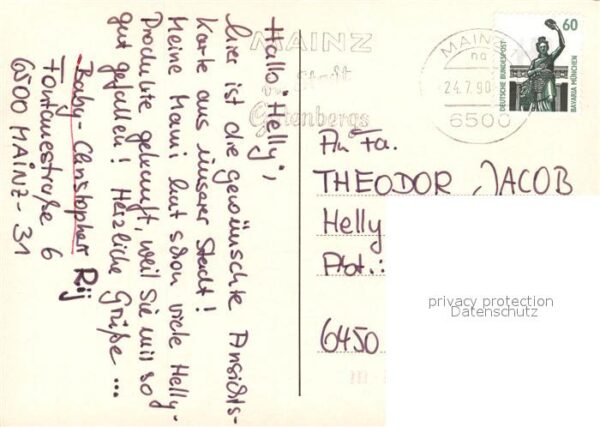 "Hallo "Helly",
hier ist die gewünschte Ansichts-
Karte aus unserer Stadt!
Meine Mami hat schon viele Helly-
Produkte gekauft, weil Sie mir so
gut gefallen! Herzliche Grüße ...
Baby-Christopher Rij
Fontanestraße 6
6500 MAINZ-31
MAINZ
Stadt
Gutenbergs
MAINZ 1
na
24.7.90
6500
60
DEUTSCHE BUNDESPOST
BAVARIA MÜNCHEN
An Fa.
THEODOR JACOB
Helly
Prot.:
6450
privacy protection
Datenschutz